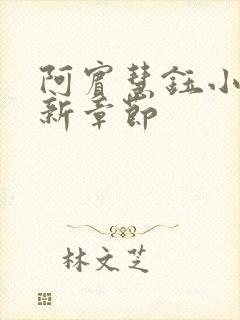 阿宾慧钰小
新章节
林文芝